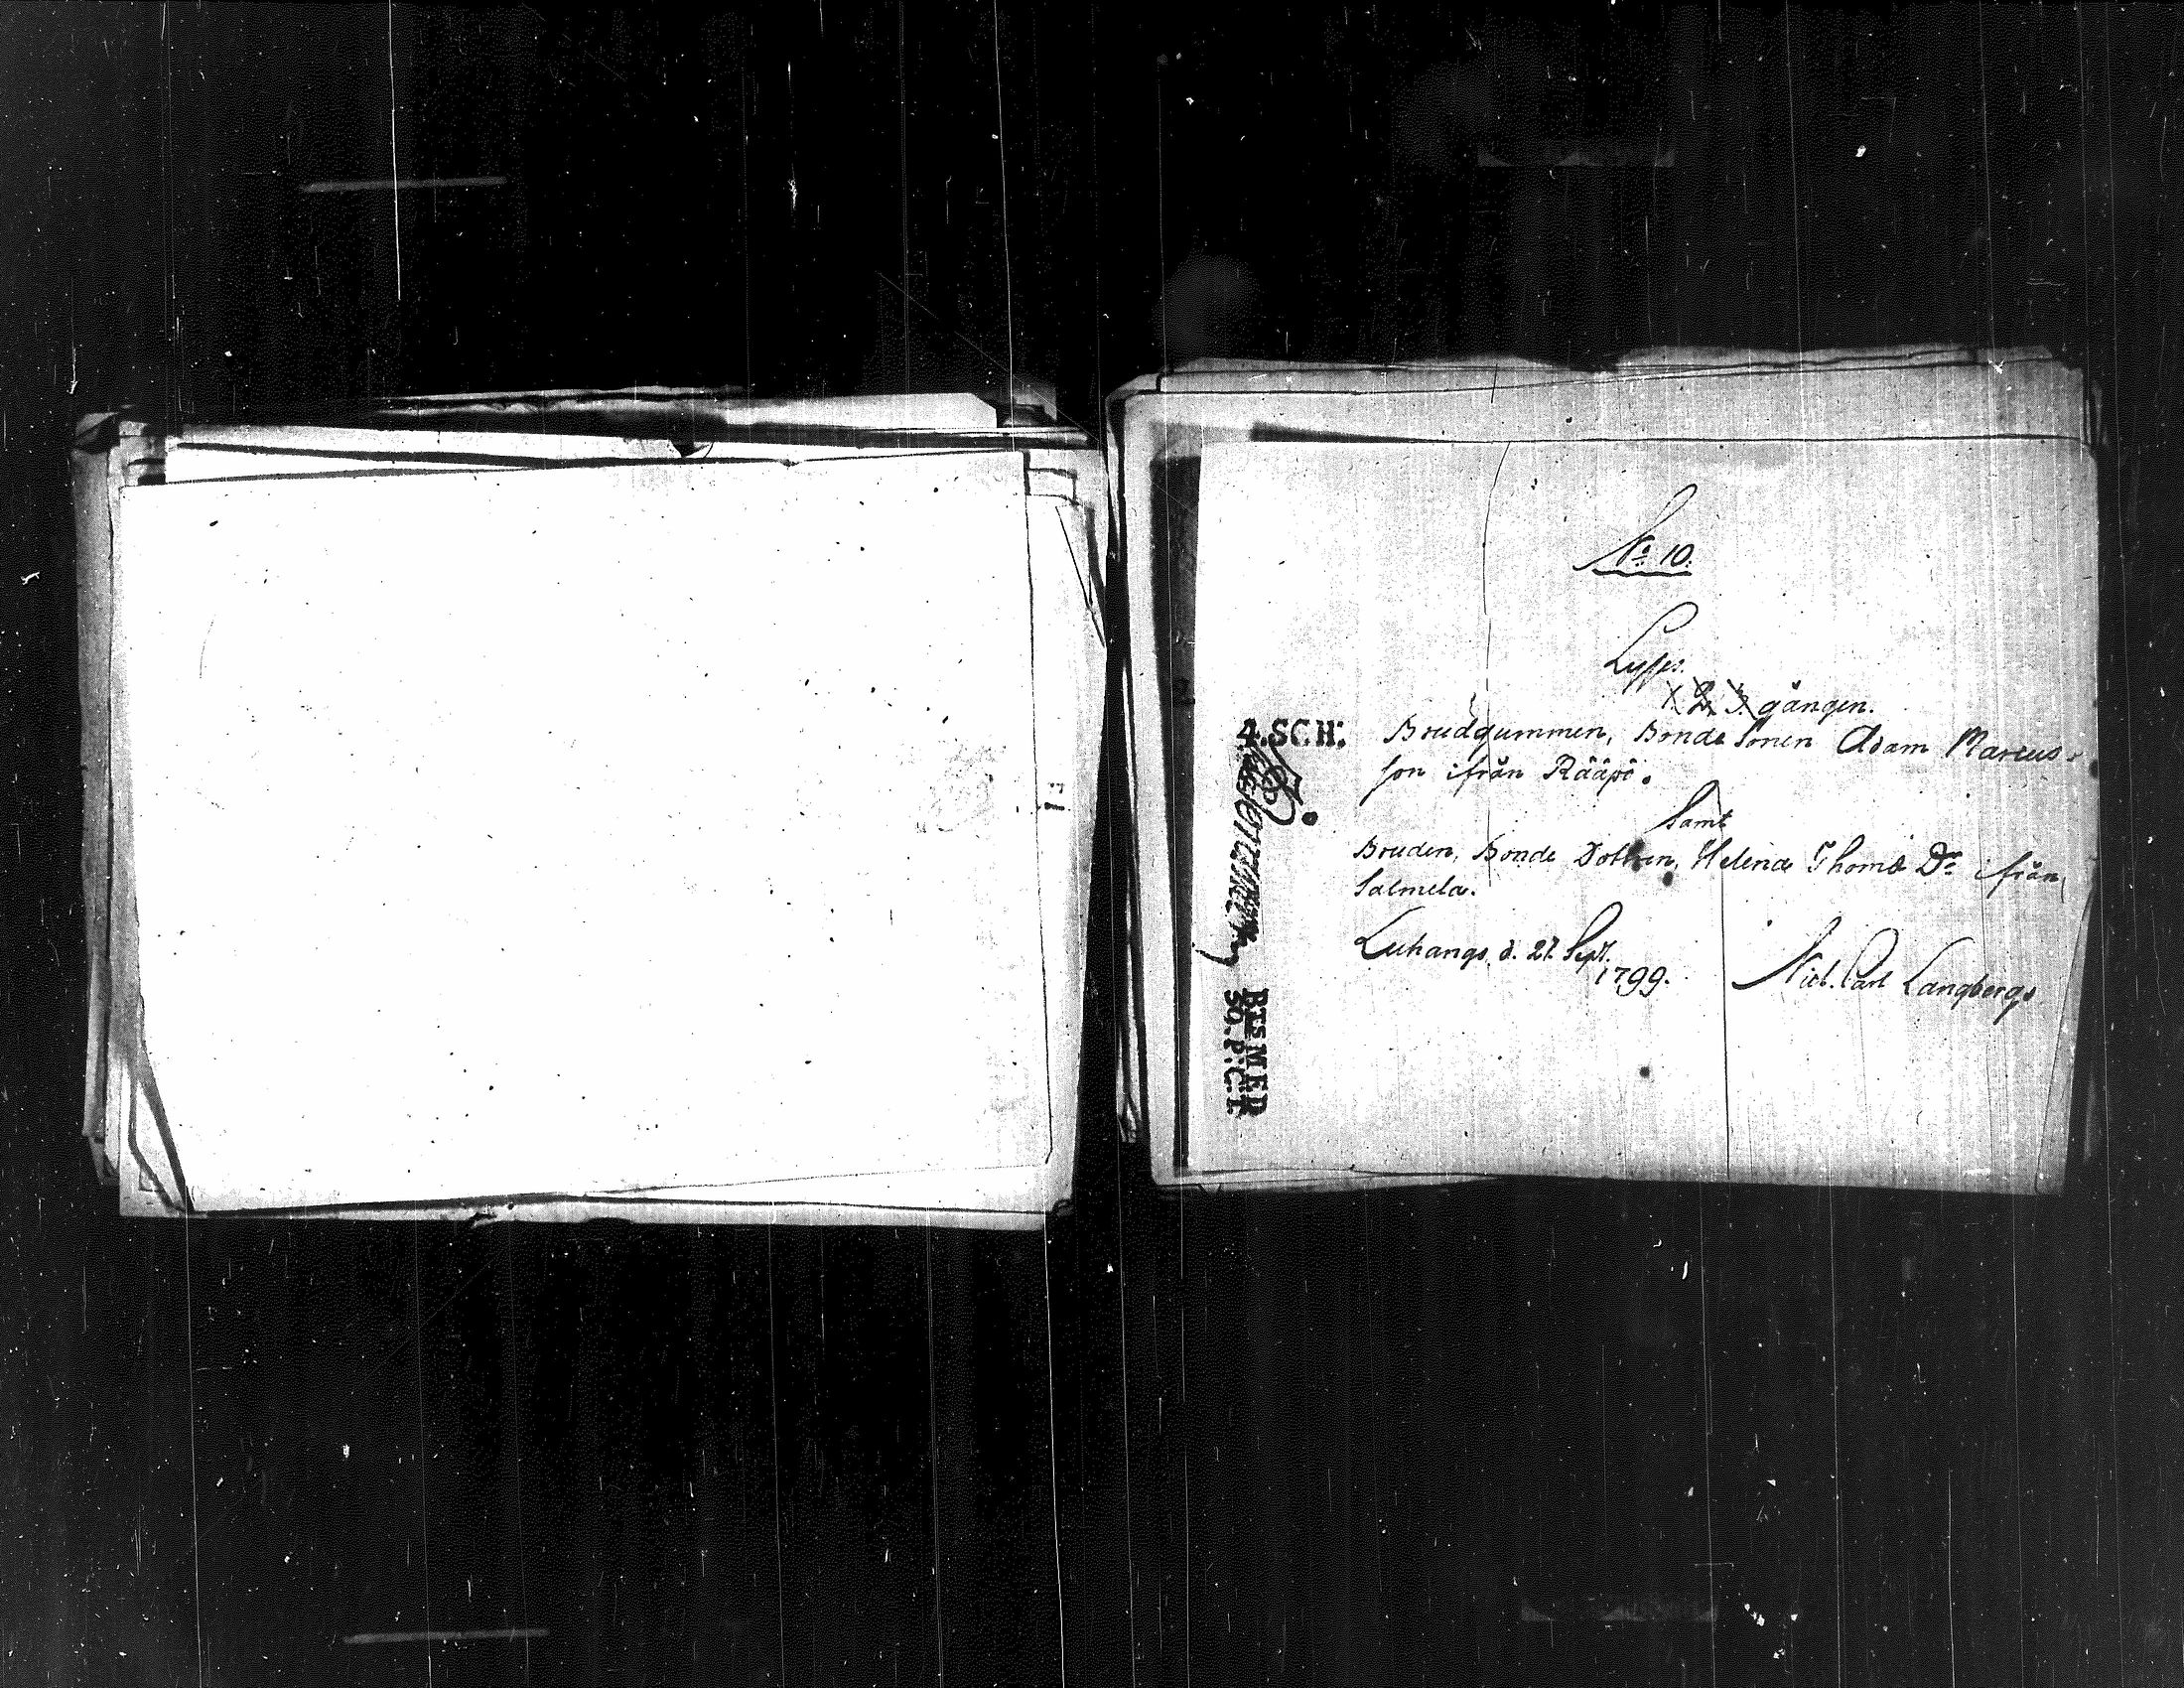 No 10.
Lyses.
1. 2. 3. gången.
Brudgummen, Bonde Sonen Adam Marcus-
son ifrån Rääpö.
Samt
Bruden, Bonde Dottren, Helena Thomæ Dr ifrån
Salmela.
Luhango d. 27. Sept.
1799.
Nicl. Carl Langberg
4. SCH:
BTSMED
30. P: C: T.